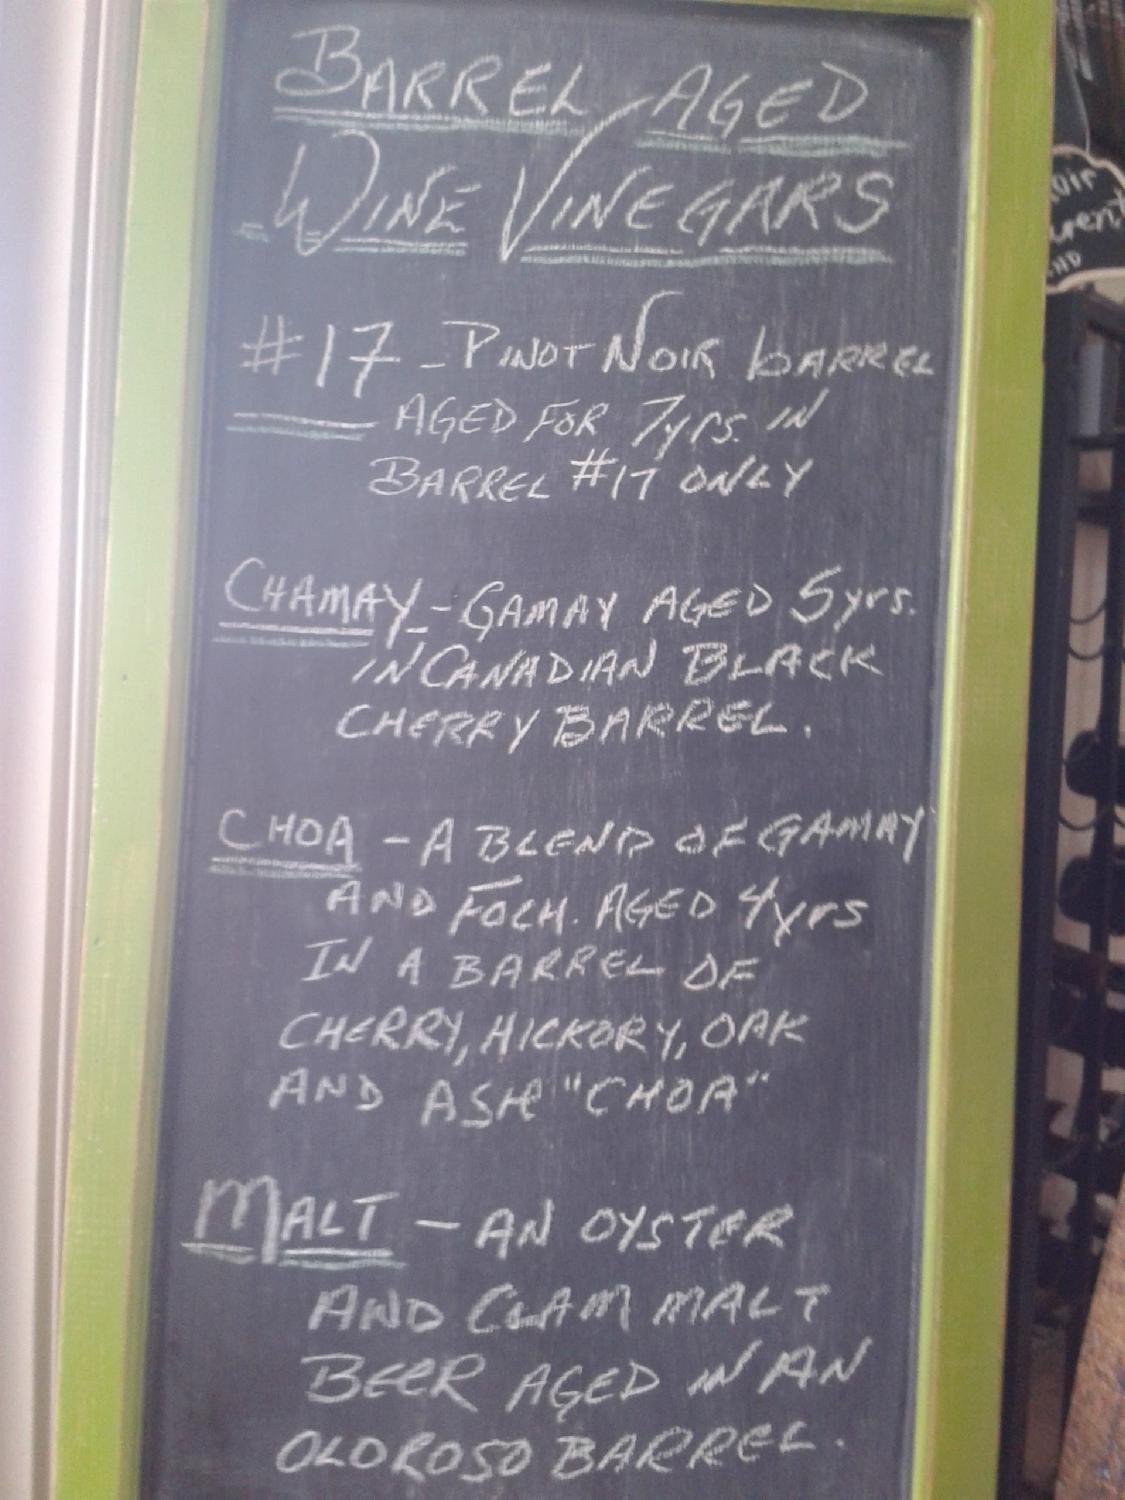 BARREL AGED
WINE VINEGARS
#17 - PINOT NOIR barrel
AGED FOR 7yrs. IN
BARREL #17 ONLY
CHAMAY - GAMAY AGED 5yrs.
IN CANADIAN BLACK
CHERRY BARREL.
CHOA - A BLEND OF GAMAY
AND FOCH. AGED 4yrs
IN A BARREL OF
CHERRY, HICKORY, OAK
AND ASH "CHOA"
MALT - AN OYSTER
AND CLAM MALT
BEER AGED IN AN
OLOROSO BARREL.